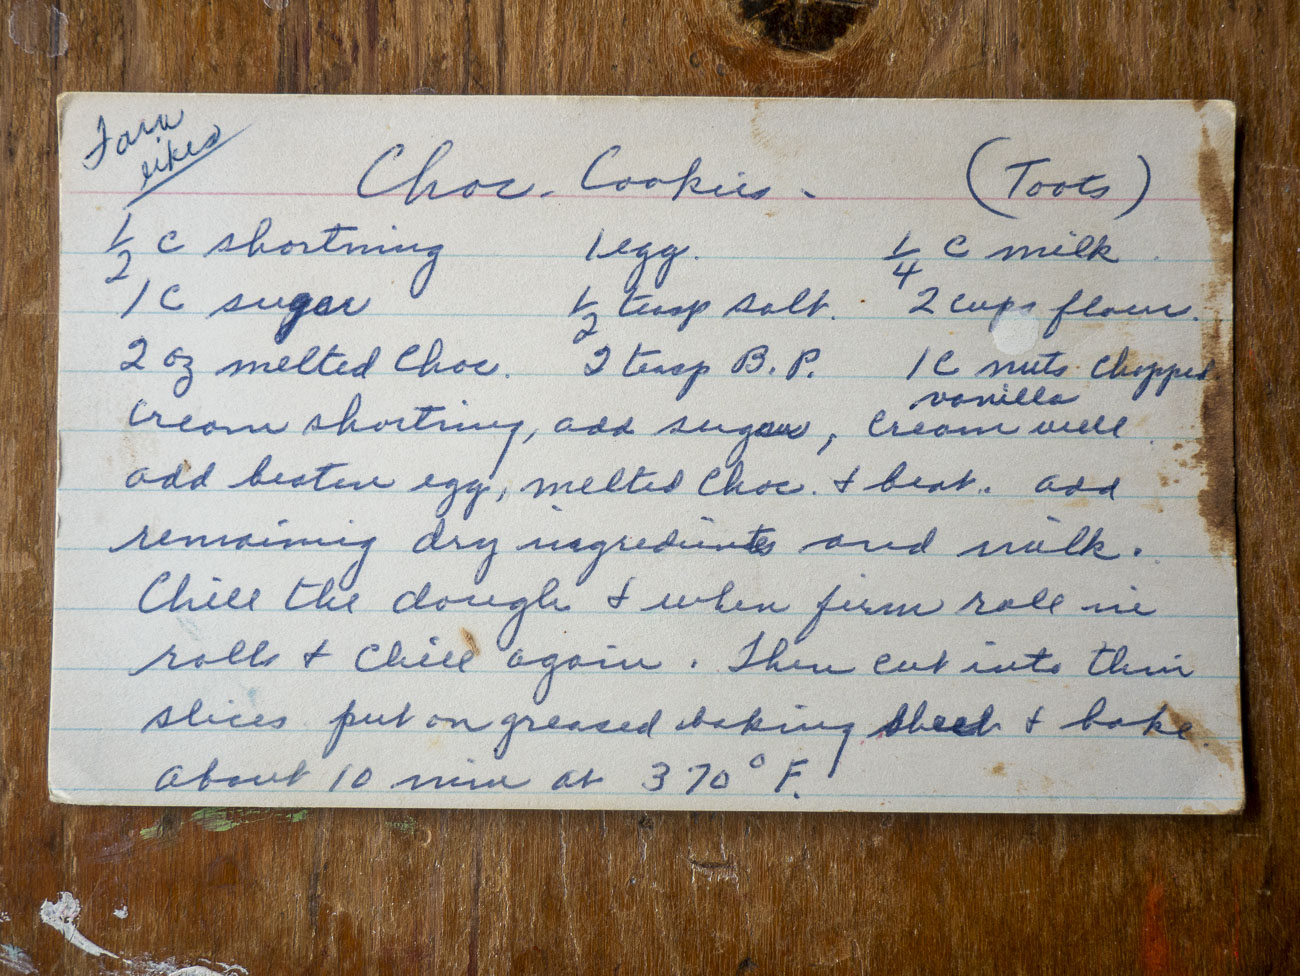 Fara
likes
Choc. Cookies. (Toots)
1/2 C shortning 1 egg. 1/4 C milk
1 C sugar 1/2 teasp salt. 2 cups flour.
2 oz melted Choc. 2 teasp B.P. 1 C nuts chopped.
vanilla
Cream shortning, add sugar, cream well.
add beaten egg, melted Choc. & beat. add
remaining dry ingredients and milk.
Chill the dough & when firm roll in
rolls & chill again. Then cut into thin
slices put on greased baking sheet & bake
about 10 min at 370° F.